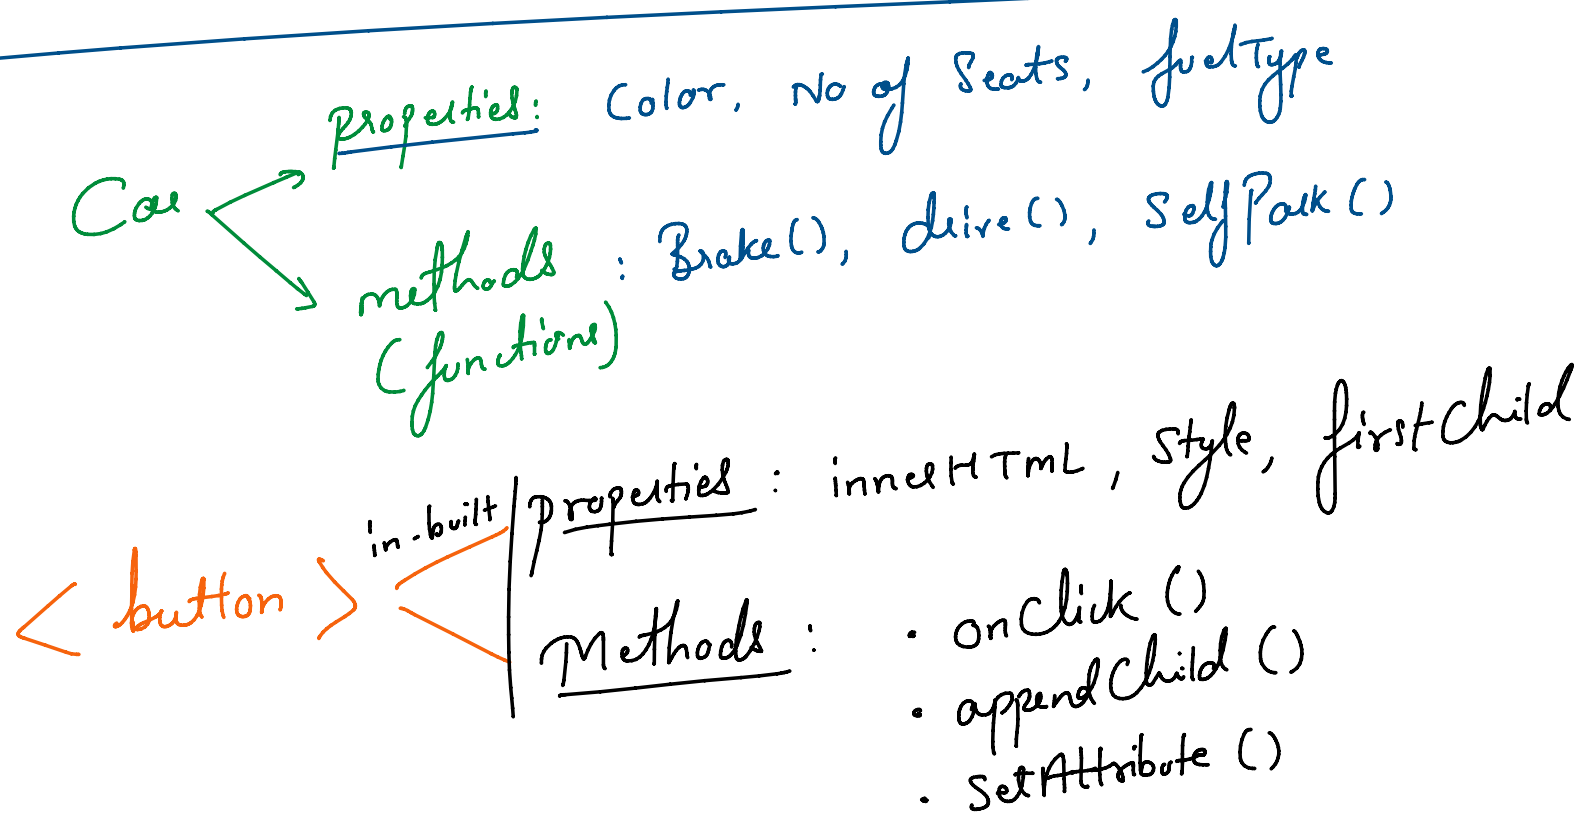 Properties: Color, No of Seats, fuelType
Car
methods : Brake(), drive(), SelfPark()
(functions)
in-built Properties : innerHTML, Style, firstChild
<button>
Methods : • onClick()
• appendChild()
• SetAttribute()